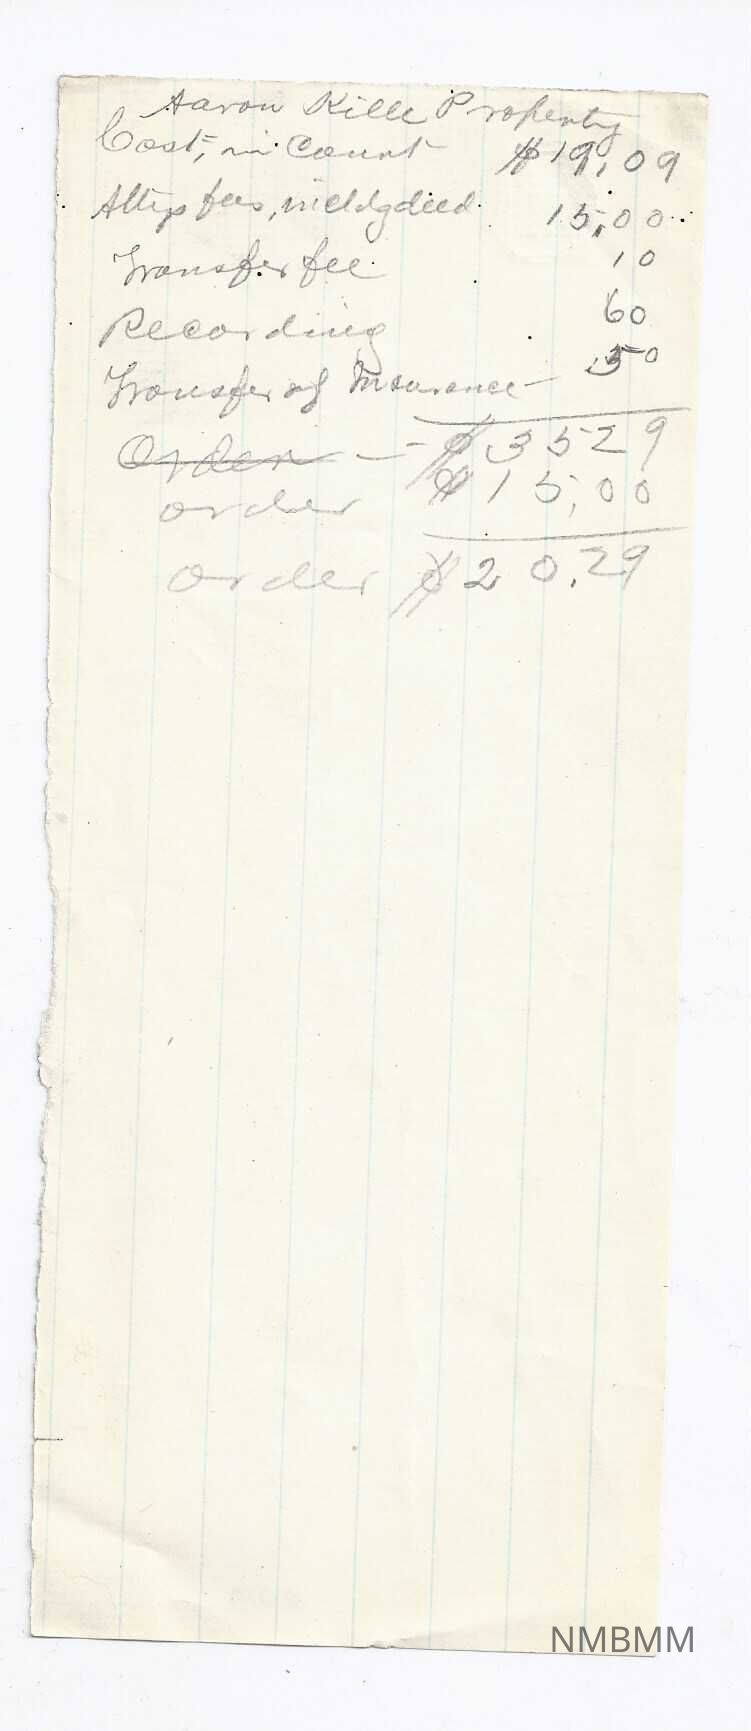 Aaron Kille Property
Cost, in Court $19,09
Attys fees, incldg deed 15,00
Transfer fee 10
Recording 60
Transfer of Insurance 50
Order $3529
order $15,00
order $20.29
NMBMM